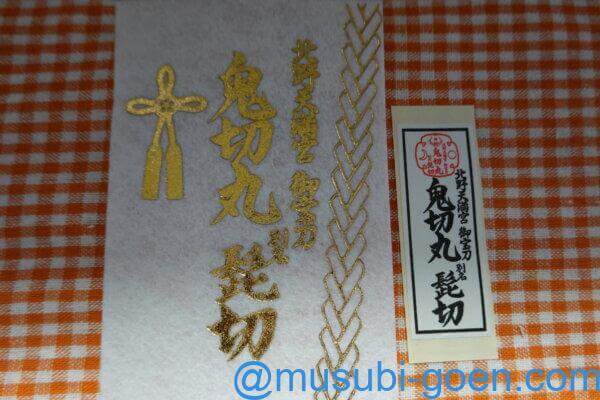 北野天満宮 御宝刀
鬼切丸 別名 髭切
鬼切丸
北野天満宮 御宝刀
鬼切丸 別名 髭切
@musubi-goen.com